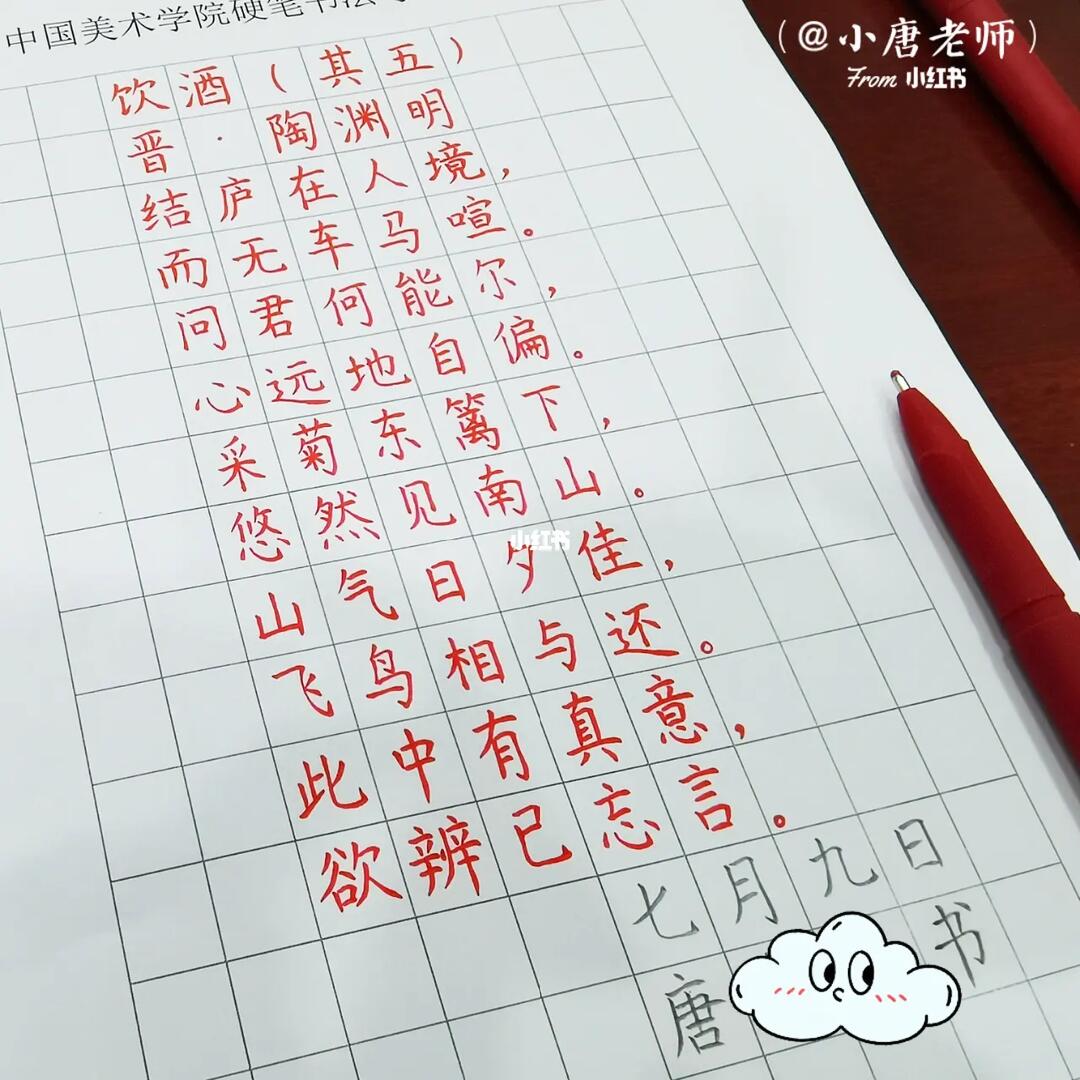 中国美术学院硬笔书法
(@小唐老师)
From 小红书
饮酒(其五)
晋·陶渊明
结庐在人境,
而无车马喧。
问君何能尔,
心远地自偏。
采菊东篱下,
悠然见南山。
小红书
山气日夕佳,
飞鸟相与还。
此中有真意,
欲辨已忘言。
七月九日
唐 书